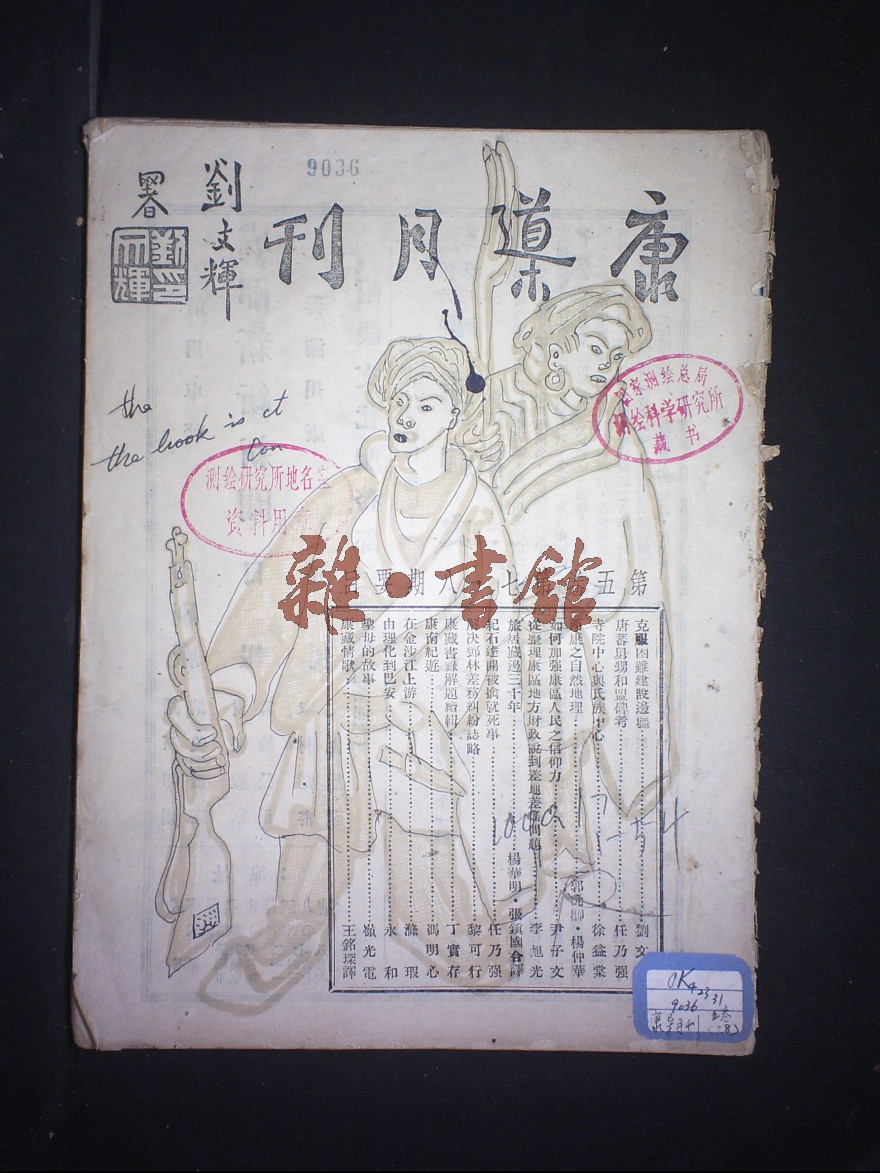 9036
康導月刊
劉文輝
署
劉文輝印
the
the book is at
国家测绘总局
测绘科学研究所
藏书
测绘研究所地名室
资料用章
雜·書館
第五卷第七、八期要目
克服困難建設邊疆 劉文
唐蕃甥舅和盟碑考 任乃强
寺院中心與氏族中心 徐益棠
康之自然地理 郭 卿·楊仲華
如何加强康區人民之信仰力 尹子文
從整理康區地方財政說到差地差 問題 李旭光
旅居藏邊三十年 楊華明·張鎮國合譯
紀石達開被擒就死事 任乃强
解決鄧林差務糾紛誌略 黎可行
康藏書錄解題續輯 丁實存
康南紀遊 馮明心
在金沙江上游 滌瑕
由理化到巴安 永和
聖母的故事 嶺光電
康藏情歌 王銘琛譯
1000
OK42331
9036
康导月刊
(7.8)